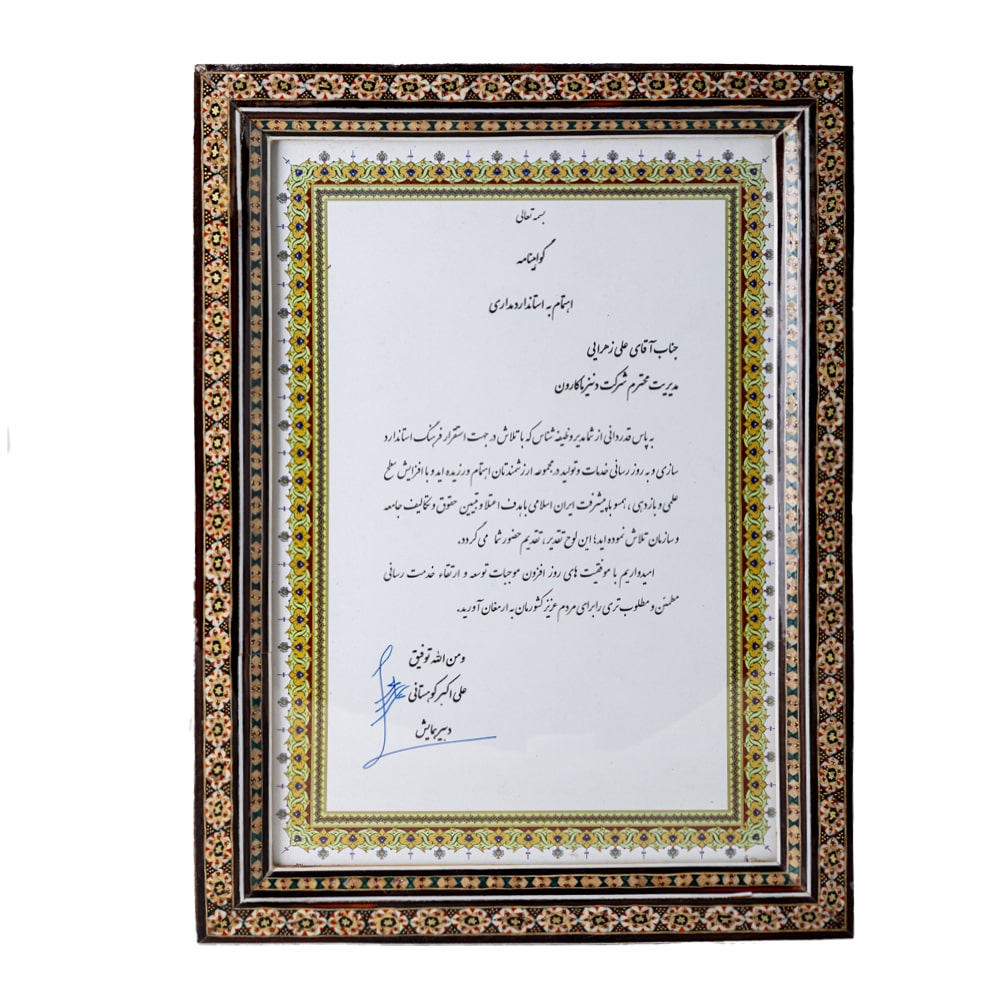 بسمه تعالی
گواهینامه
اهتمام به استانداردمداری
جناب آقای علی زهرایی
مدیریت محترم شرکت دنیز پاکارون
به پاس قدردانی از شما مدیر وظیفه شناس که با تلاش در جهت استقرار فرهنگ استاندارد
سازی و به روز رسانی خدمات و تولید در مجموعه ارزشمندتان اهتمام ورزیده اید و با افزایش سطح
علمی و بازدهی ، همسو با پیشرفت ایران اسلامی با هدف اعتلا و تبیین حقوق و تکالیف جامعه
و سازمان تلاش نموده اید؛ این لوح تقدیر ، تقدیم حضور شما می گردد.
امیدواریم با موفقیت های روز افزون موجبات توسعه و ارتقاء خدمت رسانی
مطمئن و مطلوب تری را برای مردم عزیز کشورمان به ارمغان آورید.
ومن الله توفیق
علی اکبر کوهستانی
دبیر همایش